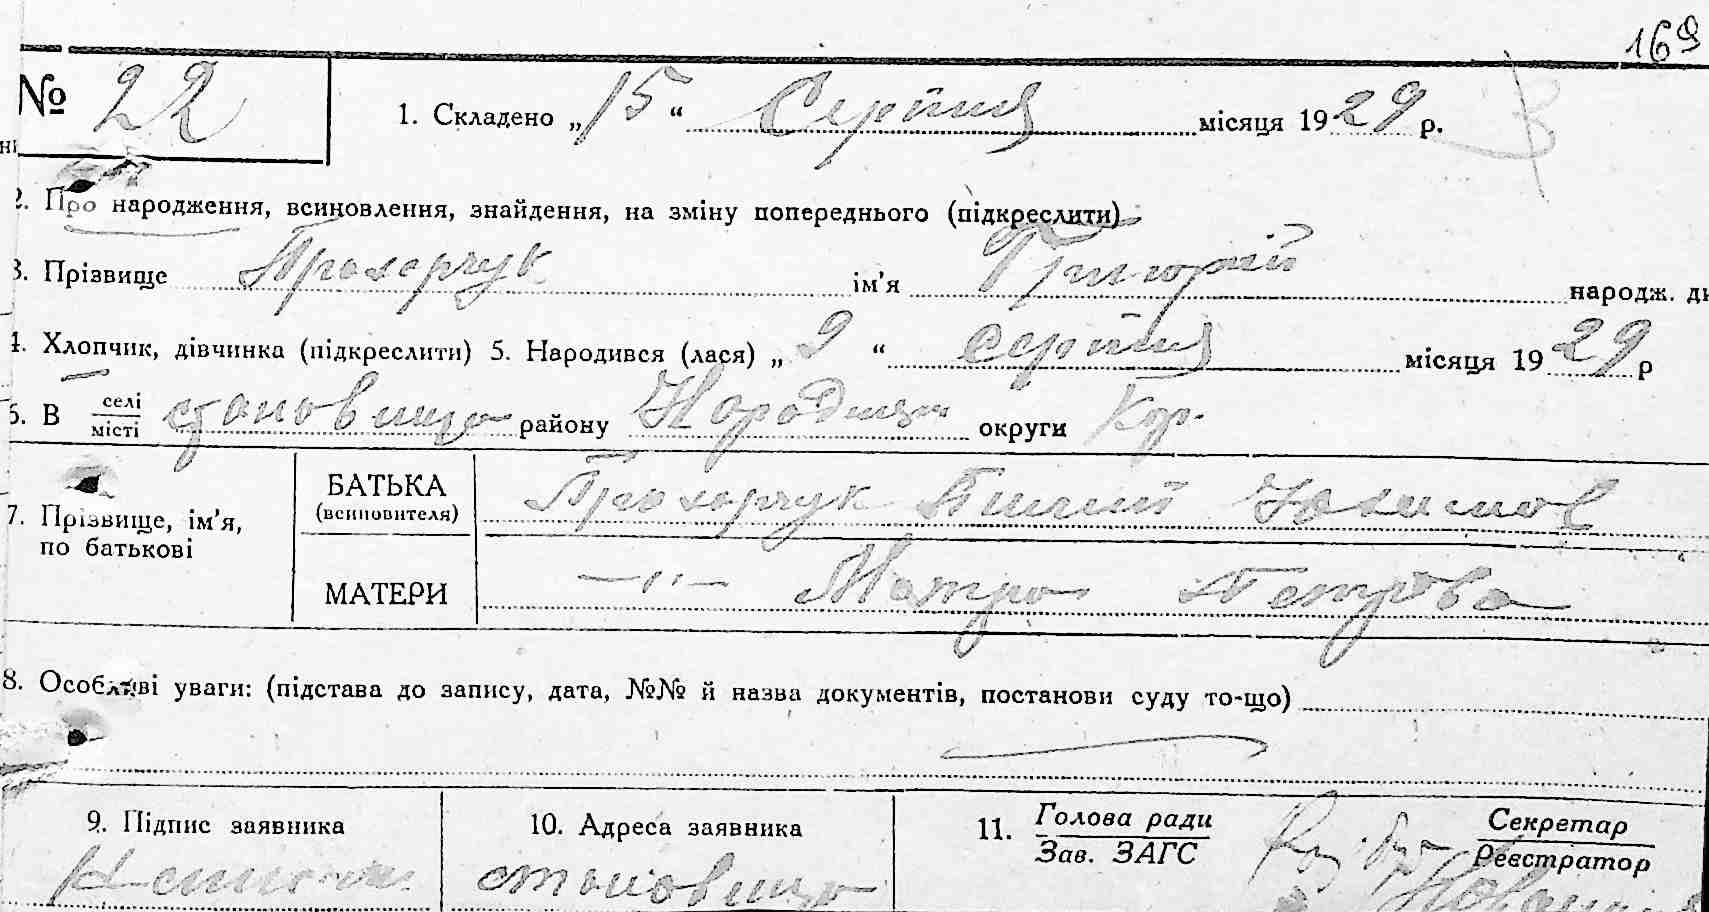 169
№ 22
1. Складено „15“ Серпня місяця 1929 р.
2. Про народження, всиновлення, знайдення, на зміну попереднього (підкреслити)
3. Прізвище Прохорчук ім’я Григорій народж.
4. Хлопчик, дівчинка (підкреслити) 5. Народився (лася) „9“ серпня місяця 1929 р
6. В селі/місті становище району Народици округи Кор.
7. Прізвище, ім’я, по батькові
БАТЬКА (всиновителя) Прохорчук
МАТЕРИ —"— Петрова
8. Особливі уваги: (підстава до запису, дата, №№ й назва документів, постанови суду то-що)
9. Підпис заявника
10. Адреса заявника
становище
11. Голова ради / Зав. ЗАГС
Секретар / Реєстратор